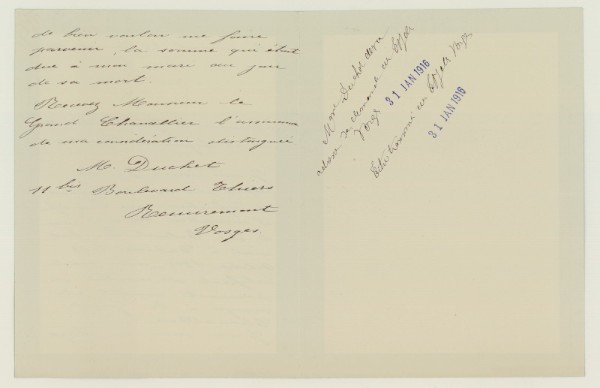 de bien vouloir me faire
parvenir, la somme qui était
due à mon mari au jour
de sa mort.
Recevez Monsieur le
Grand Chancellier l'assurance
de ma considération distinguée
M. Duchet
11 bis Boulevard Thiers
Remiremont
Vosges
Mme Duchet devra
adresser sa demande au Préfet
Vosges 31 JAN 1916
au Préfet Vosges
31 JAN 1916